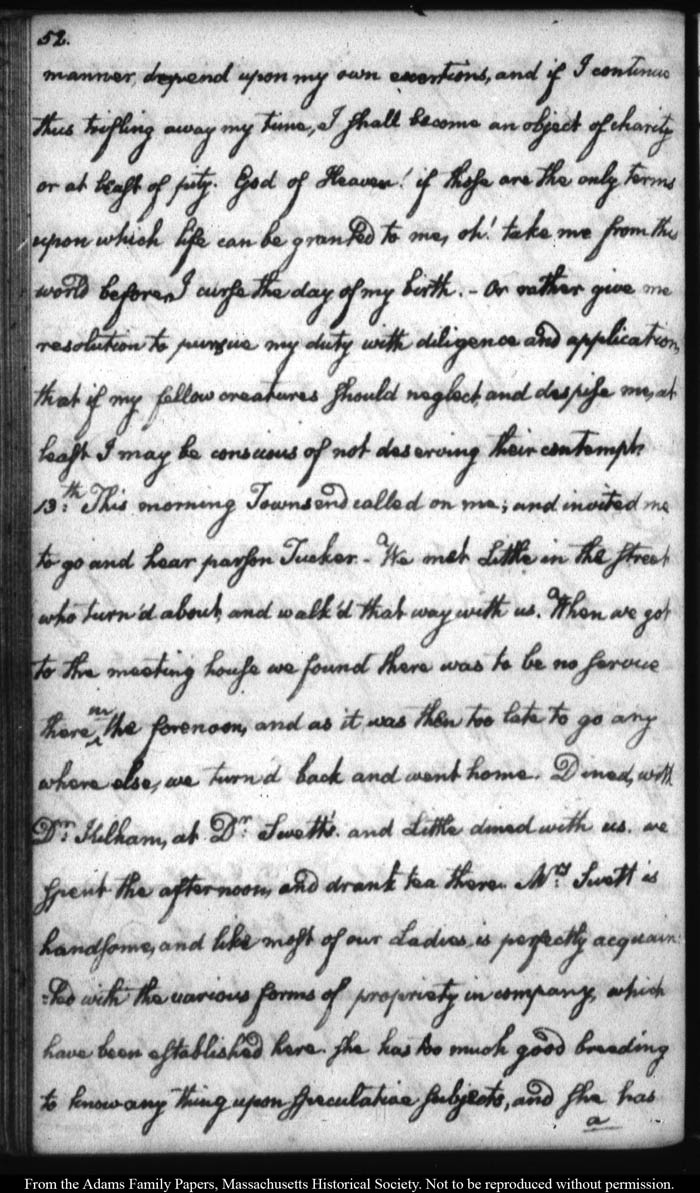 52.
manner, depend upon my own exertions, and if I continue
thus trifling away my time, I shall become an object of charity
or at least of pity. God of Heaven! if those are the only terms
upon which life can be granted to me, oh! take me from this
world before, I curse the day of my birth. - Or rather give me
resolution to pursue my duty with diligence and application,
that if my fellow creatures should neglect, and despise me, at
least I may be conscious of not deserving their contempt.
13th: This morning Townsend called on me; and invited me
to go and hear parson Tucker. - We met Little in the street
who turn'd about, and walk'd that way with us. When we got
to the meeting house we found there was to be no service
there in the forenoon, and as it was then too late to go any
where else, we turn'd back and went home. Dined, with
Dr: Kilham, at Dr: Swett's. and Little dined with us. we
spent the afternoon, and drank tea there. Mrs: Swett is
handsome, and like most of our Ladies, is perfectly acquain:
:ted with the various forms of propriety in company, which
have been established here. She has too much good breeding
to know any thing upon speculative subjects, and she has
a
From the Adams Family Papers, Massachusetts Historical Society. Not to be reproduced without permission.